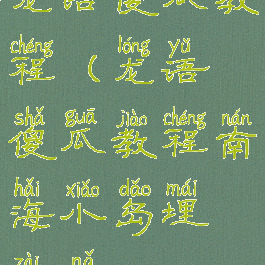 龙语傻瓜教
chéng lóng yǔ
程(龙语
shǎ guā jiào chéng nán
傻瓜教程南
hǎi xiǎo dǎo mái
海小岛埋
zài nǎ